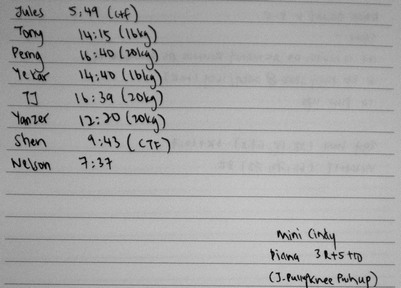 Jules 5:49 (CTF)
Tony 14:15 (16kg)
Perng 16:40 (20kg)
Yekar 14:40 (16kg)
TJ 16:39 (20kg)
Yanzer 12:20 (20kg)
Shen 9:43 (CTF)
Nelson 7:37
mini Cindy
Diana 3R+5+10
(J. Pull/Knee Push up)